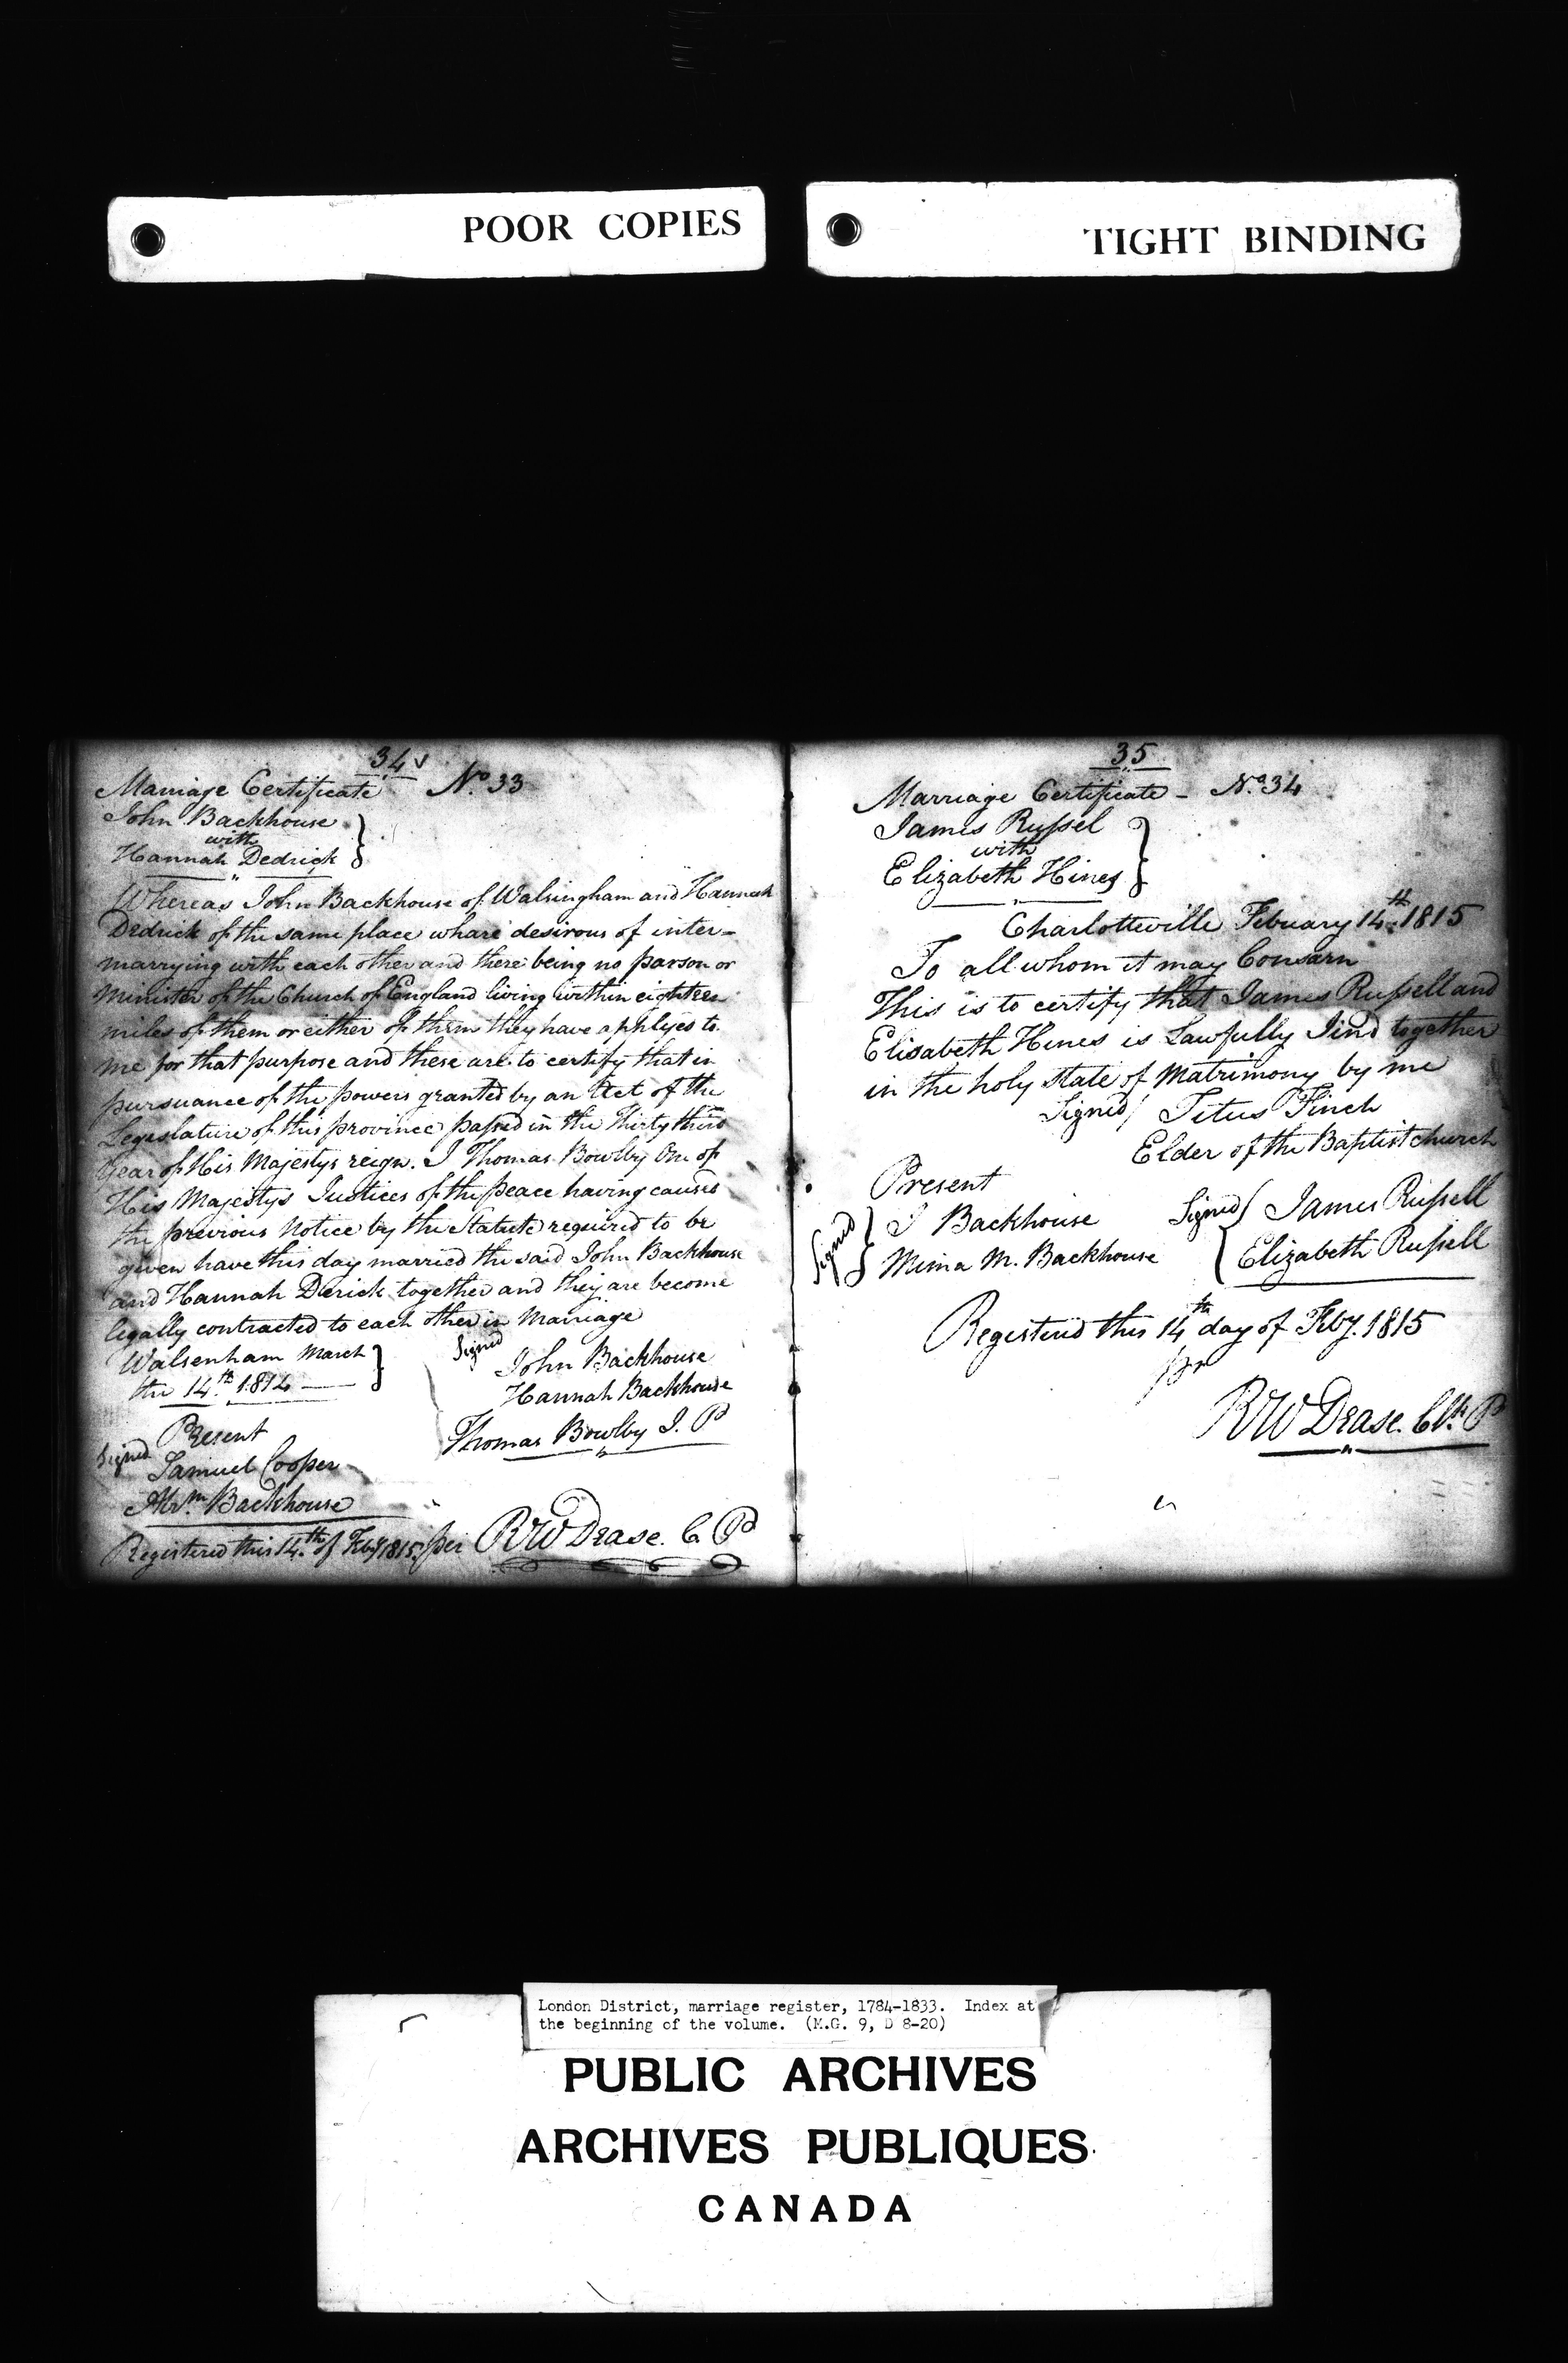 POOR COPIES
TIGHT BINDING
34
Marriage Certificate No. 33
John Backhouse
with
Hannah Dedrick
Whereas John Backhouse of Walsingham and Hannah
Dedrick of the same place whare desirous of inter-
marrying with each other and there being no parson or
Minister of the Church of England living within eighteen
miles of them or either of them they have applyed to
me for that purpose and these are to certify that in
pursuance of the powers granted by an Act of the
Legislature of this province passed in the Thirty third
Year of His Majestys reign. I Thomas Bowlby One of
His Majestys Justices of the peace having caused
the previous Notice by the Statute required to be
given have this day married the said John Backhouse
and Hannah Derick together and they are become
legally contracted to each other in Marriage
Walsenham March
the 14th 1814
Signed
John Backhouse
Hannah Backhouse
Thomas Bowlby J. P
Present
Signed
Samuel Cooper
Abrm Backhouse
Registered this 14th of Feby 1815 per RW Dease. C. P
35
Marriage Certificate - No. 34
James Russel
with
Elizabeth Hines
Charlotteville Febuary 14th 1815
To all whom it may Consarn
This is to certify that James Russell and
Elisabeth Hines is Lawfully Jind together
in the holy State of Matrimony by me
Signed Titus Finch
Elder of the Baptist church
Present
Signed
J Backhouse
Mima M. Backhouse
Signed James Russell
Elizabeth Russell
Registered this 14th day of Feby. 1815
pr
RW Dease. Clk P
London District, marriage register, 1784-1833. Index at
the beginning of the volume. (M.G. 9, D 8-20)
PUBLIC ARCHIVES
ARCHIVES PUBLIQUES
CANADA